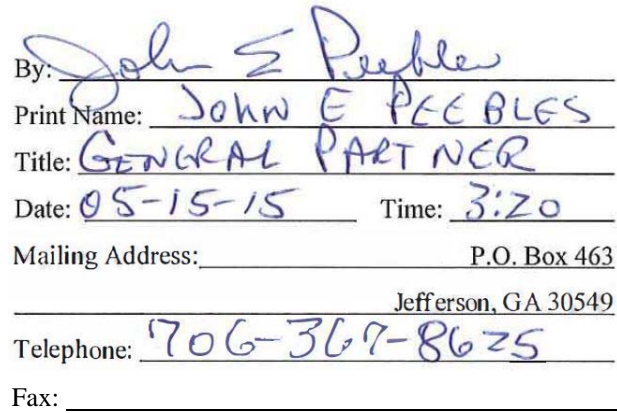 By: John E Peebles
Print Name: JOHN E PEEBLES
Title: GENERAL PARTNER
Date: 05-15-15 Time: 3:20
Mailing Address: P.O. Box 463
Jefferson, GA 30549
Telephone: 706-367-8625
Fax: